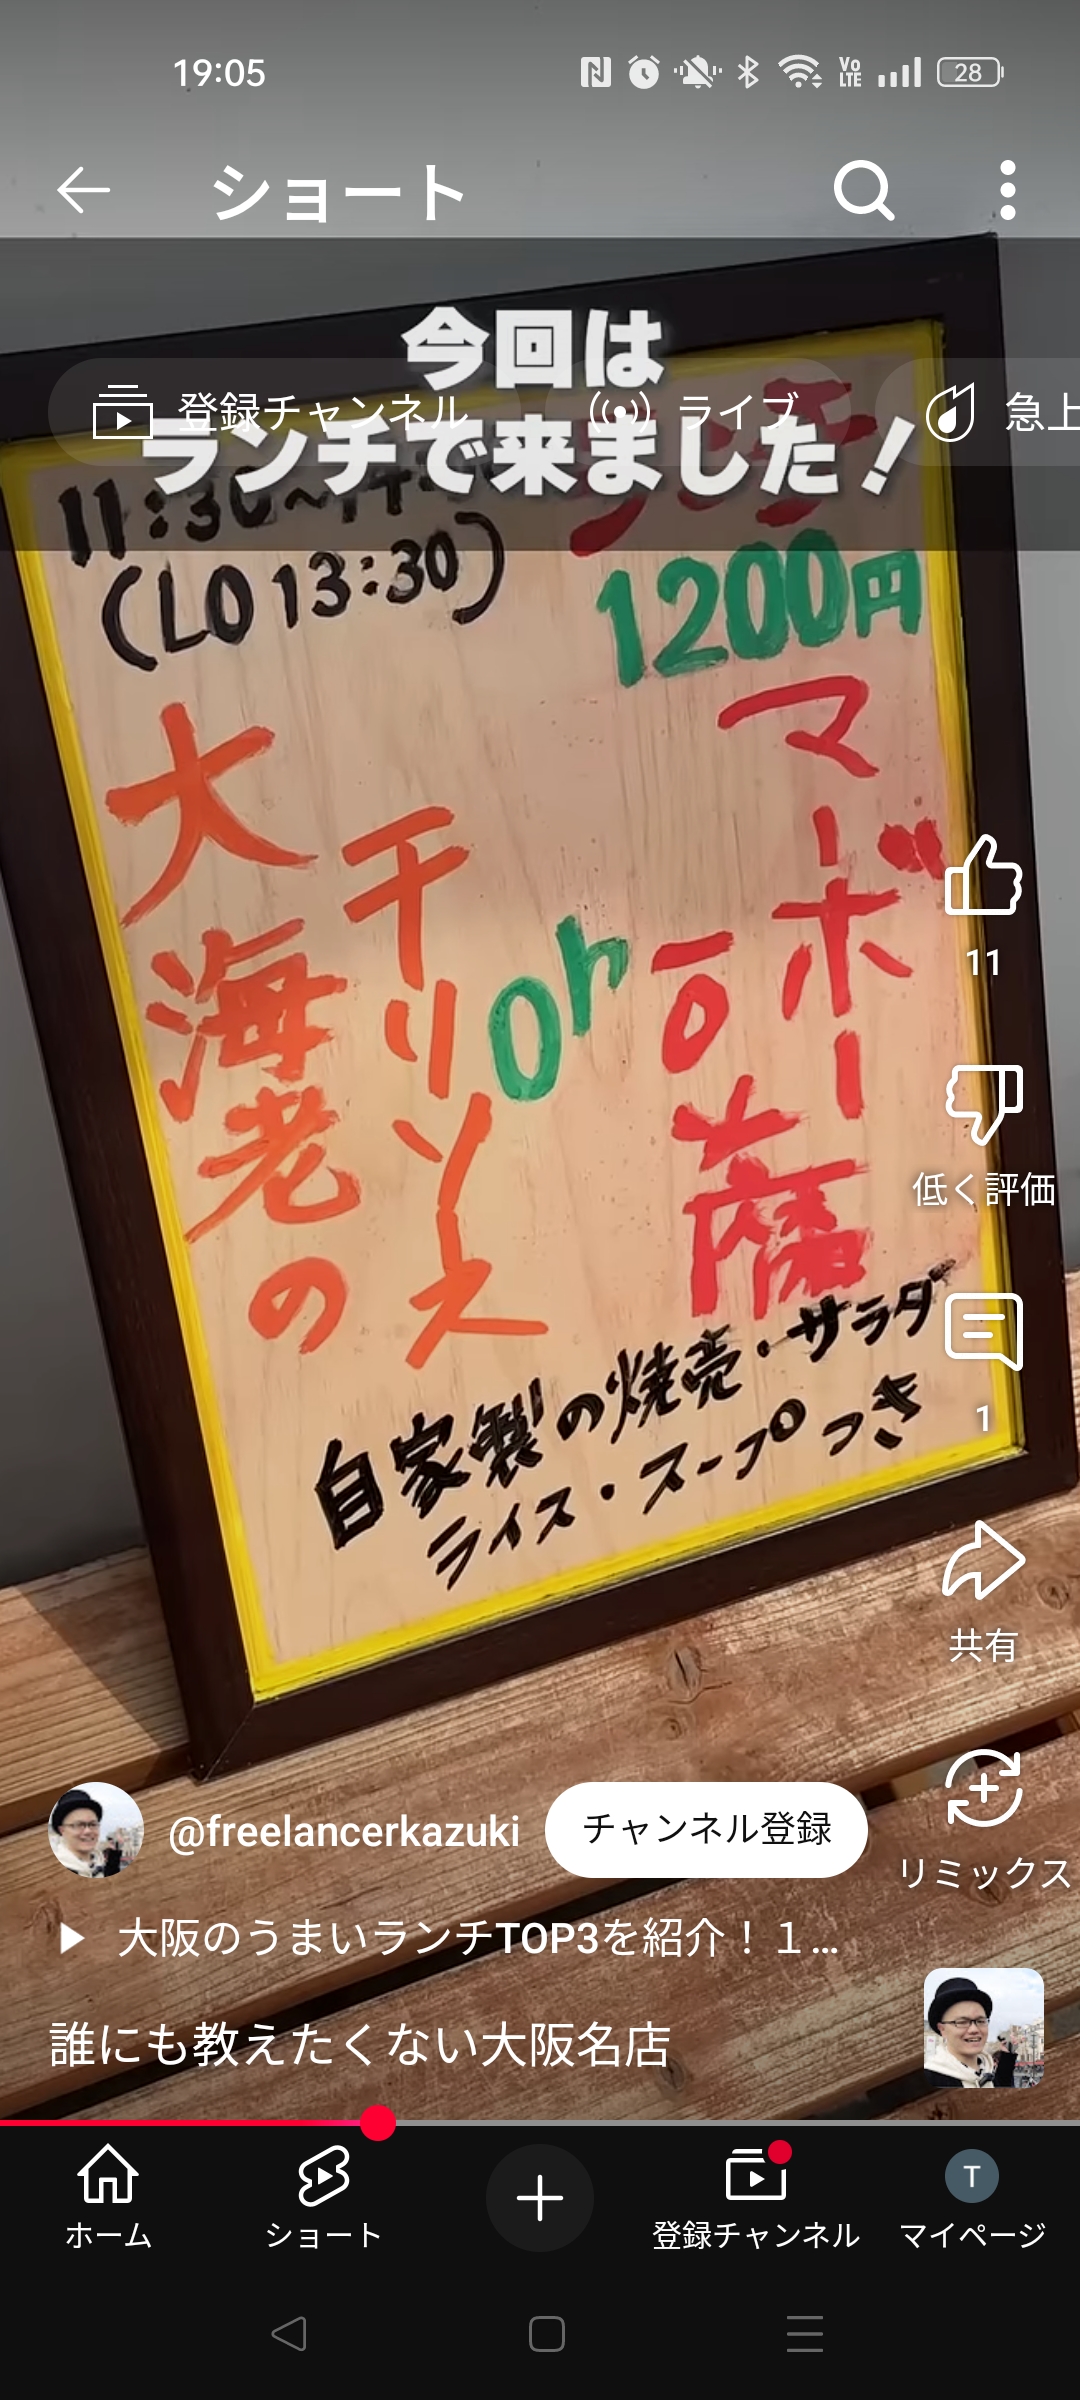 19:05
Vo LTE
28
ショート
今回は
ランチで来ました!
登録チャンネル
ライブ
急上
11:30~
(LO 13:30)
1200円
マーボー豆腐
or
大海老の
チリソース
自家製の焼売・サラダ
ライス・スープつき
11
低く評価
1
共有
リミックス
@freelancerkazuki
チャンネル登録
大阪のうまいランチTOP3を紹介!1...
誰にも教えたくない大阪名店
ホーム
ショート
登録チャンネル
T
マイページ